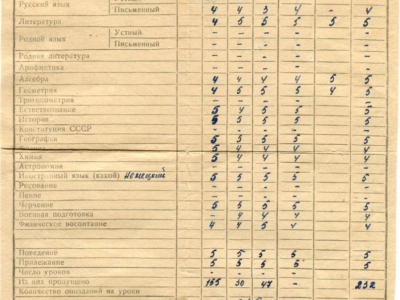 Русский язык Письменный 4 4 3 4 - 4
Литература 4 5 5 5 5 5
Родной язык Устный - - - - -
Письменный - - - - -
Родная литература - - - - -
Арифметика - - - - -
Алгебра 4 4 4 4 5 5
Геометрия 4 5 5 5 4 5
Тригонометрия - - - - -
Естествознание 5 4 5 5 5
История 5 5 5 5 5
Конституция СССР - - - - -
География 5 5 5 5 5
5 4 4 4 4
Химия 5 4 4 4 4
Астрономия - - - - -
Иностранный язык (какой) Немецкий 5 5 5 5 5
Рисование - - - - -
Пение - - - - -
Черчение 5 5 5 5 5
Военная подготовка - 4 4 4 4
Физическое воспитание 4 4 5 4 4
Поведение 5 5 5 5 5
Прилежание 5 5 5 5 5
Число уроков - - - - -
Из них пропущено 155 30 47 - 232
Количество опозданий на уроки